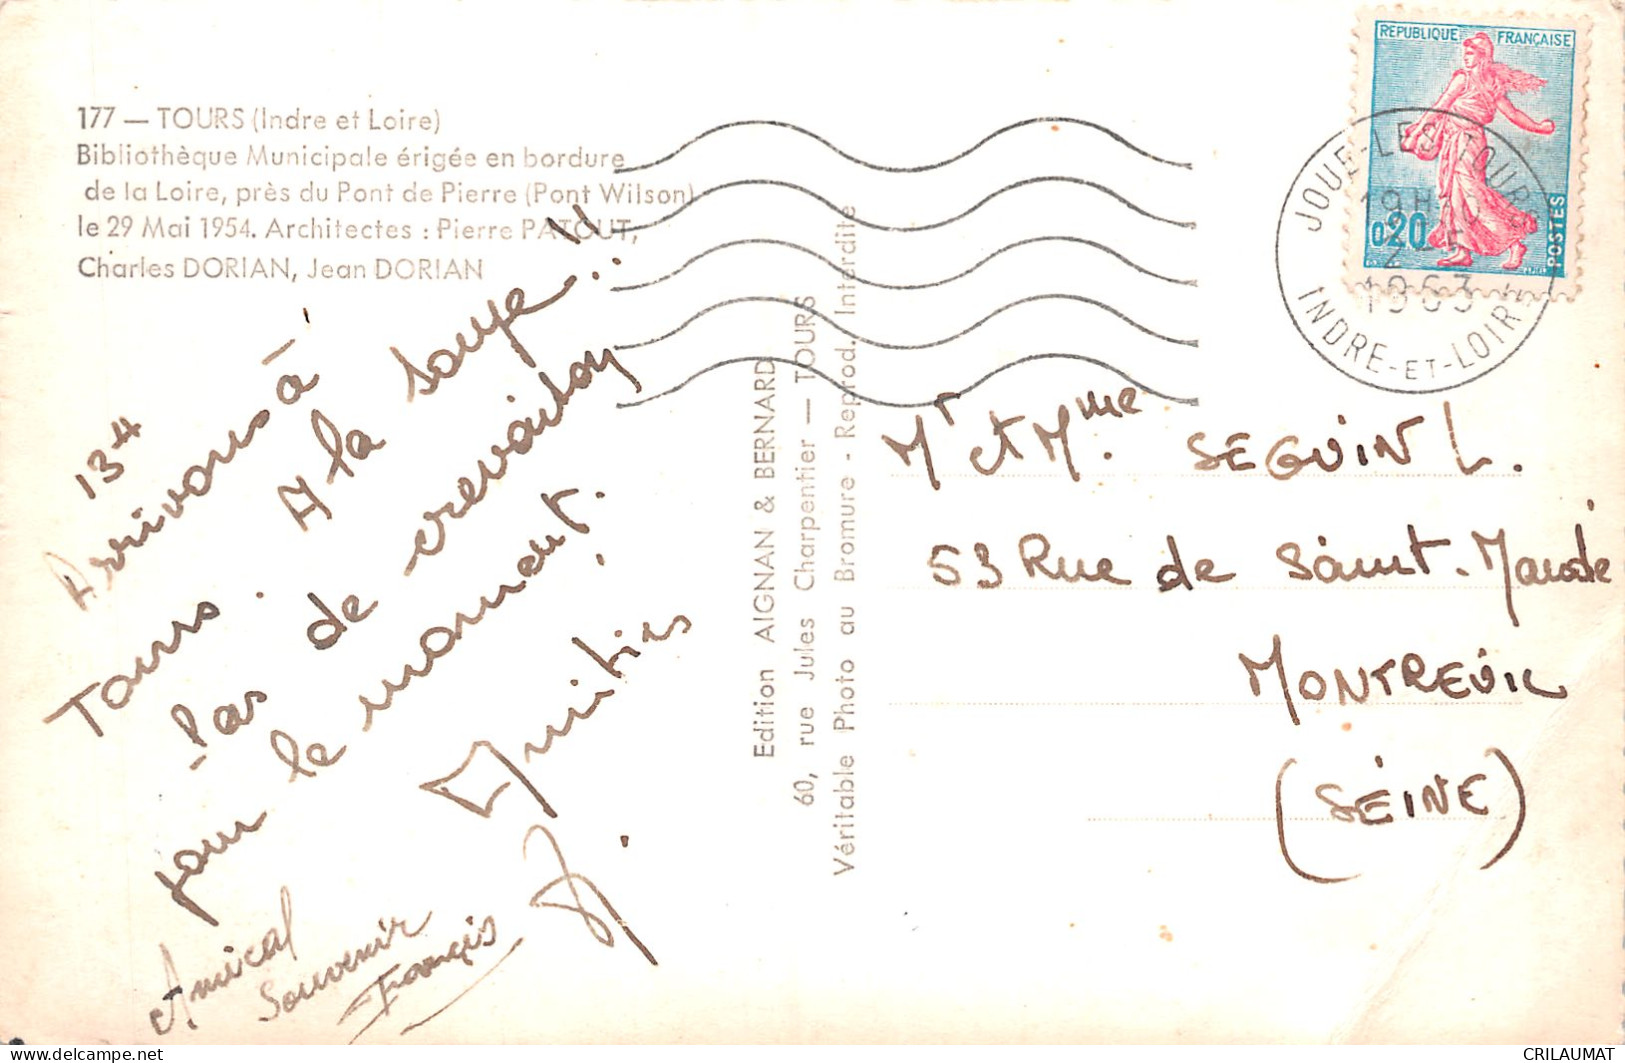 177 — TOURS (Indre et Loire)
Bibliothèque Municipale érigée en bordure
de la Loire, près du Pont de Pierre (Pont Wilson)
le 29 Mai 1954. Architectes : Pierre PATOUT,
Charles DORIAN, Jean DORIAN
13-4
Arrivons à
Tours. A la
soupe..!!
Pas de crevaison
pour le moment.
Amitiés
Amical
Souvenir
François
Edition AIGNAN & BERNARD
60, rue Jules Charpentier — TOURS
Véritable Photo au Bromure - Reprod. Interdite
REPUBLIQUE FRANÇAISE
0,20
POSTES
JOUE-LES-TOURS
19H
2-5
1963
INDRE-ET-LOIRE
Mr et Mme. SEGUIN L.
53 Rue de Saint-Mandé
MONTREUIL
(SEINE)
CRILAUMAT